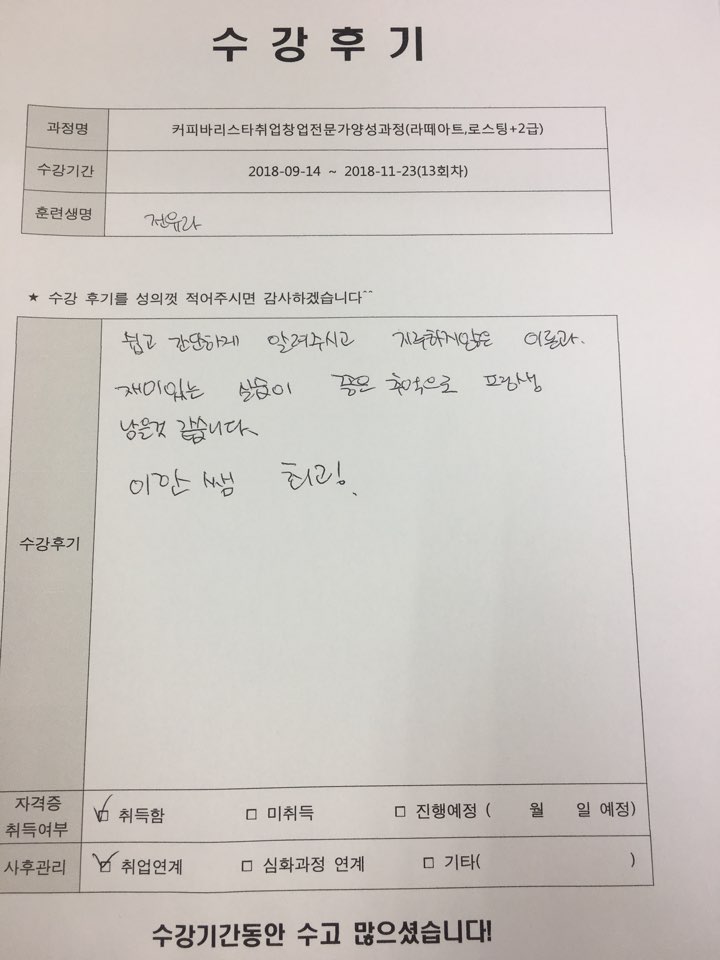 수강후기
과정명 커피바리스타취업창업전문가양성과정(라떼아트,로스팅+2급)
수강기간 2018-09-14 ~ 2018-11-23(13회차)
훈련생명 전유라
★ 수강 후기를 성의껏 적어주시면 감사하겠습니다^^
쉽고 간단하게 알려주시고 지루하지않은 이론과.
재미있는 실습이 좋은 추억으로 평생
남을것 같습니다.
쌤 최고!
수강후기
자격증
취득여부
취득함 □ 미취득 □ 진행예정 ( 월 일 예정)
사후관리 취업연계 □ 심화과정 연계 □ 기타( )
수강기간동안 수고 많으셨습니다!